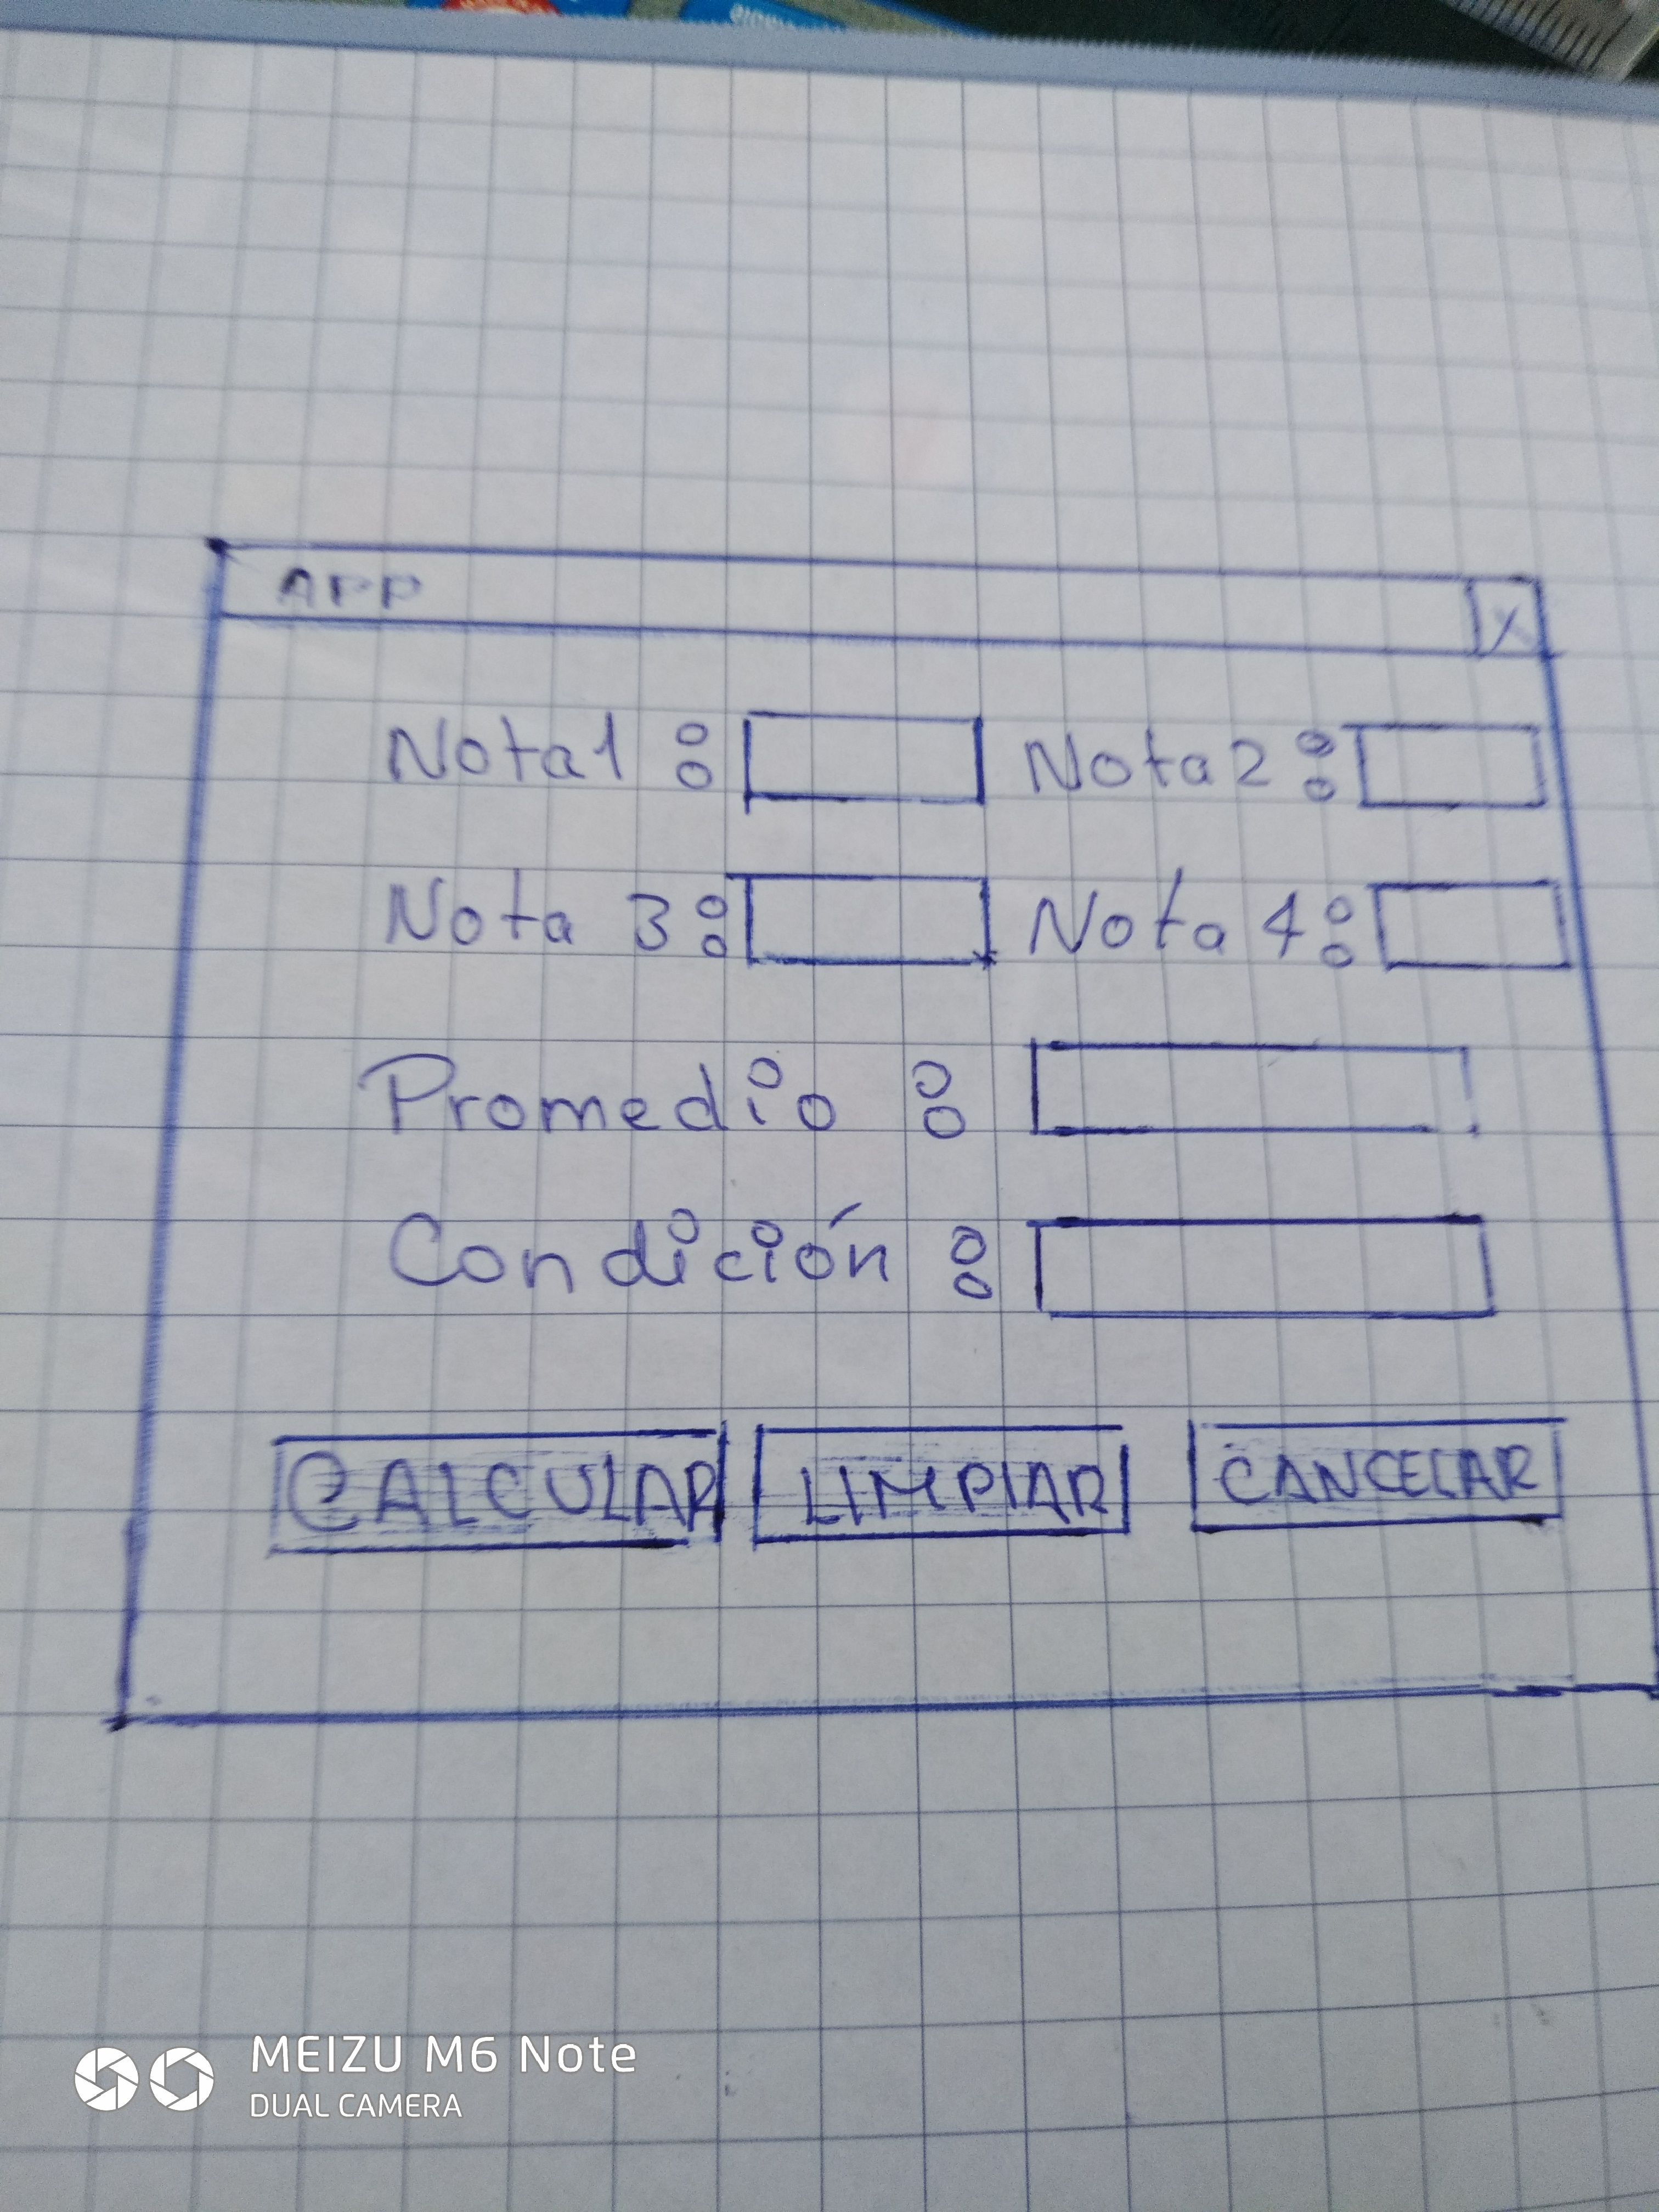 APP X
Nota1 : Nota2 :
Nota 3: Nota 4:
Promedio :
Condición :
CALCULAR LIMPIAR CANCELAR
MEIZU M6 Note
DUAL CAMERA